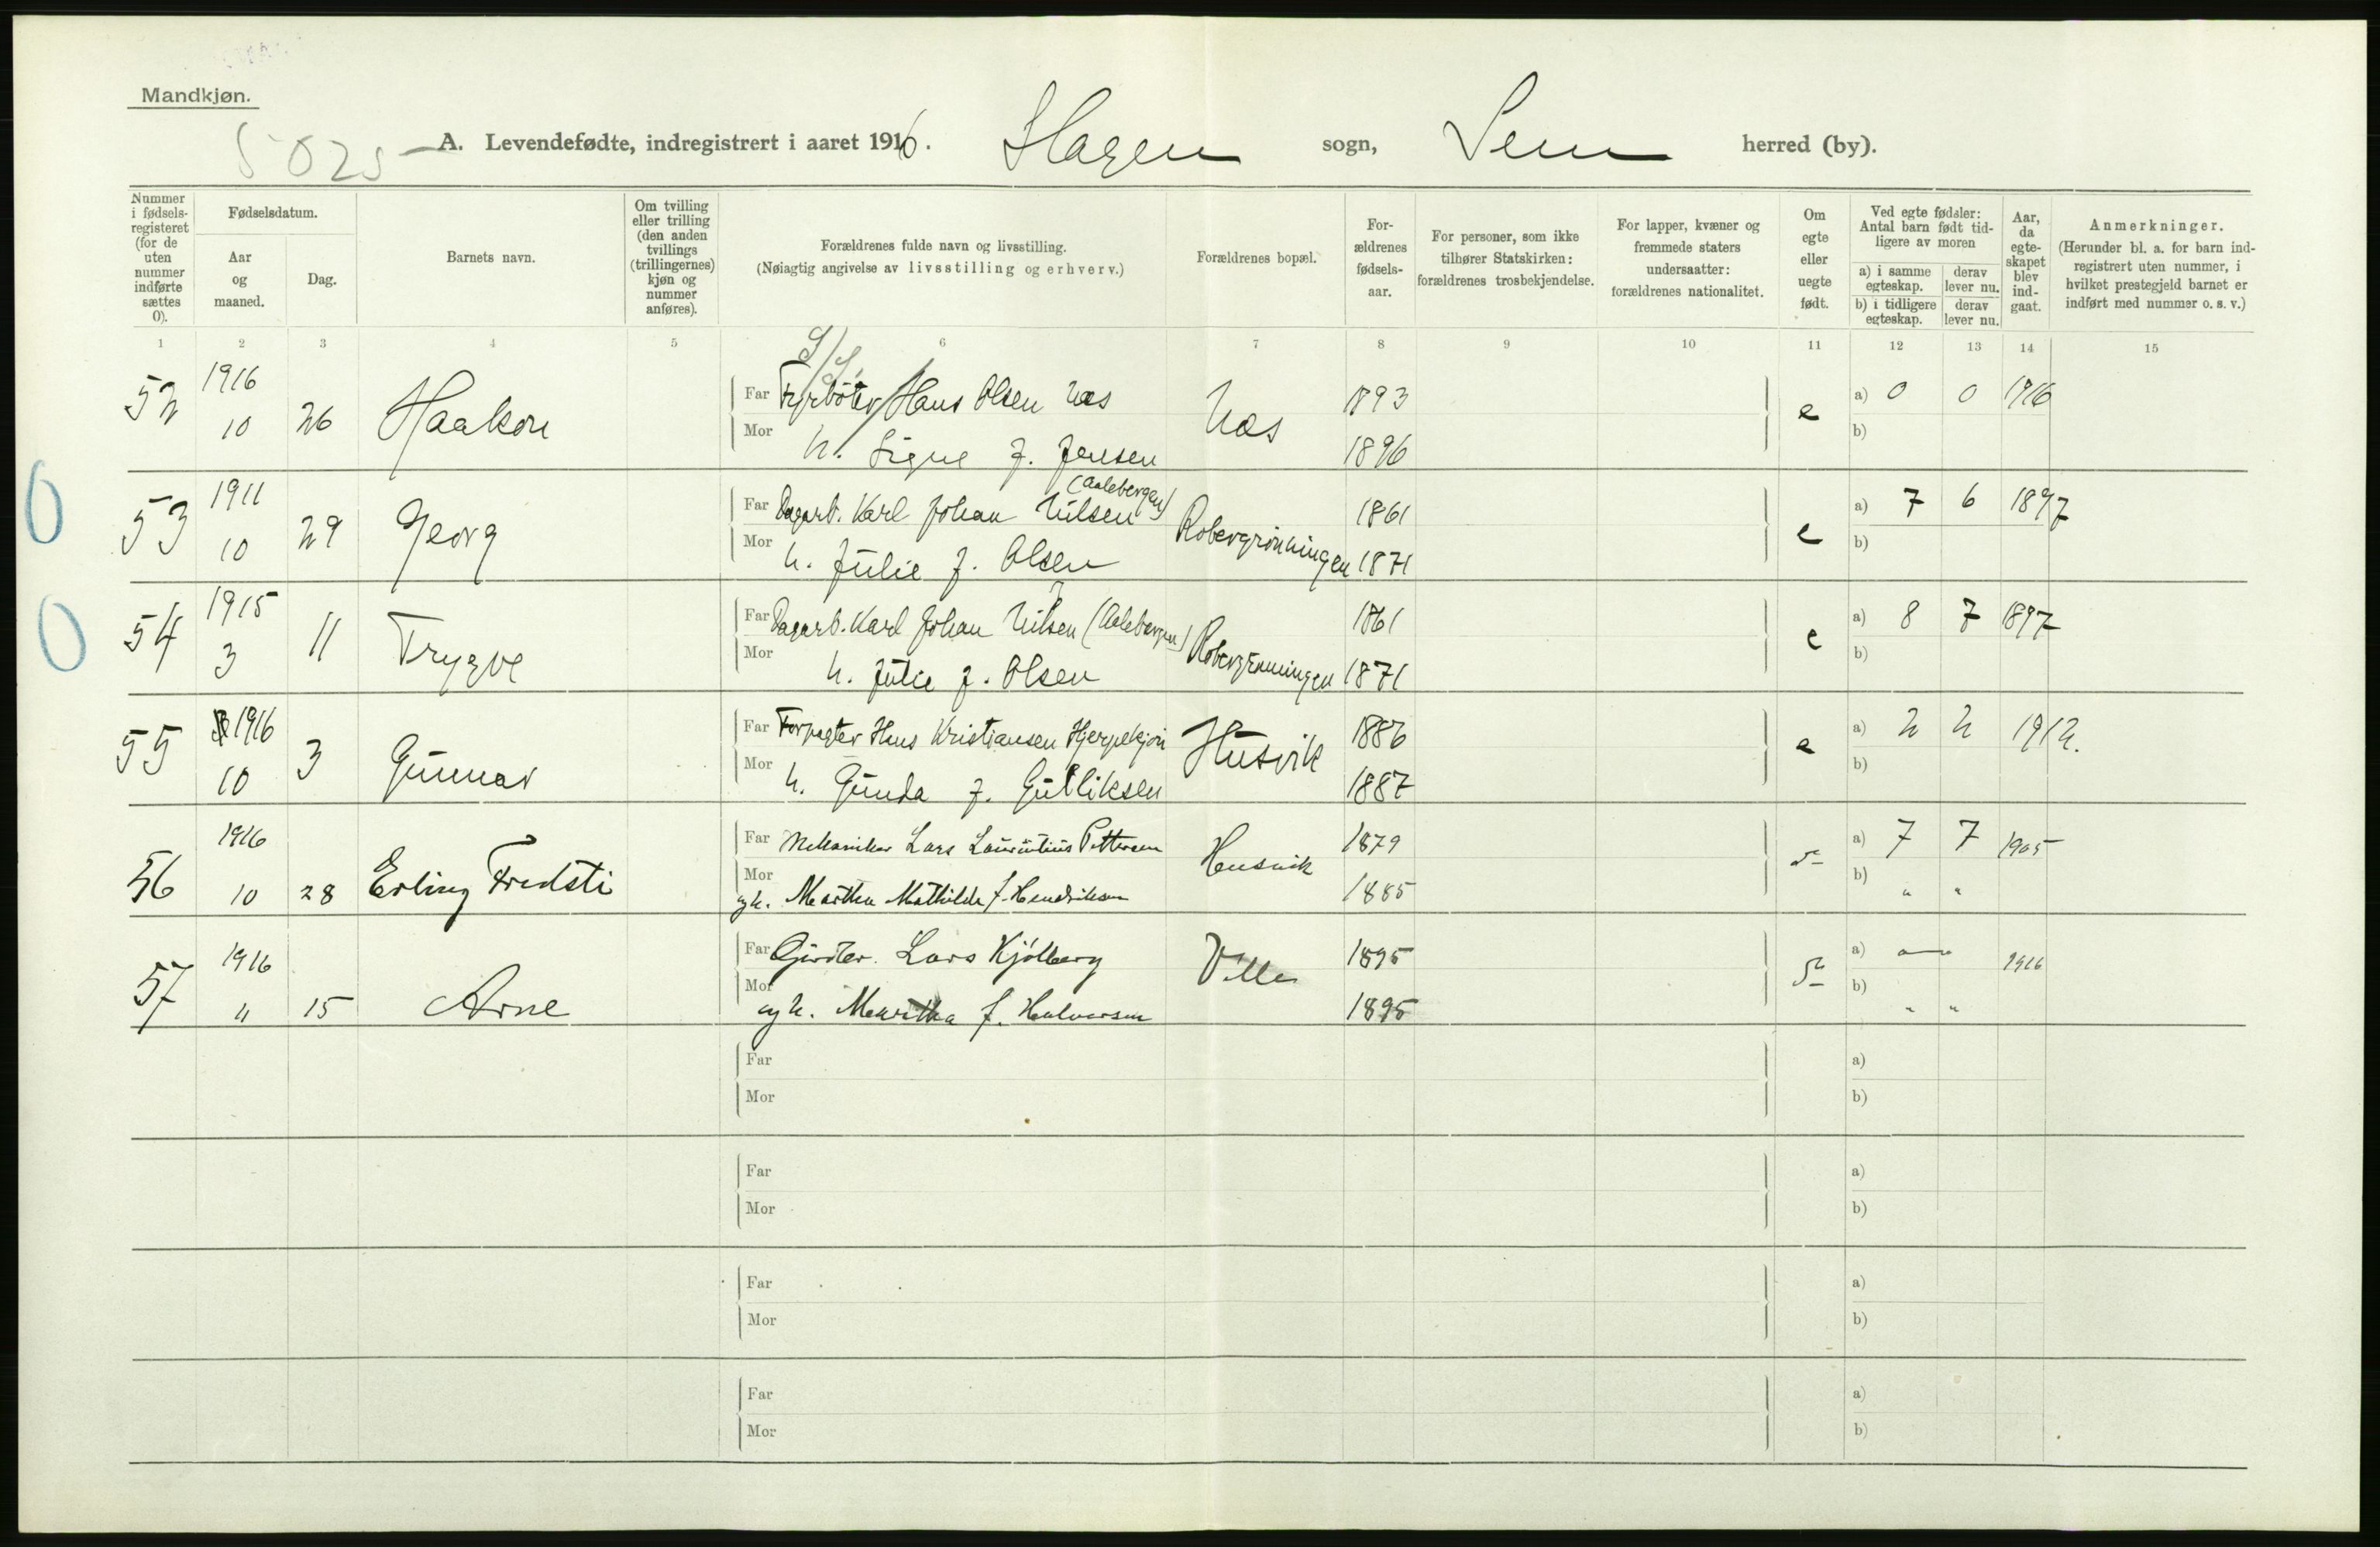 Mandkjøn.
5025
A. Levendefødte, indregistrert i aaret 1916. Slagen sogn, Sem herred (by).
Nummer i fødsels-registeret (for de uten nummer indførte sættes 0).
Fødselsdatum.
Aar og maaned.
Dag.
Barnets navn.
Om tvilling eller trilling (den anden tvillings (trillingernes) kjøn og nummer anføres).
Forældrenes fulde navn og livsstilling.
(Nøiagtig angivelse av livsstilling og erhverv.)
Forældrenes bopæl.
For-ældrenes fødsels-aar.
For personer, som ikke tilhører Statskirken: forældrenes trosbekjendelse.
For lapper, kvæner og fremmede staters undersaatter: forældrenes nationalitet.
Om egte eller uegte født.
Ved egte fødsler: Antal barn født tid-ligere av moren
a) i samme egteskap.
derav lever nu.
b) i tidligere egteskap.
derav lever nu.
Aar, da egte-skapet blev ind-gaat.
Anmerkninger.
(Herunder bl. a. for barn ind-registrert uten nummer, i hvilket prestegjeld barnet er indført med nummer o. s. v.)
1 2 3 4 5 6 7 8 9 10 11 12 13 14 15
52 1916 10 26 Haakon
Far Fyrbøter Hans Olsen Næs Næs 1893 e a) 0 0 1916
Mor h. Signe f. Jensen 1896 b)
0 53 1911 10 29 Georg
Far Dagarb. Karl Johan Nilsen (Aalebergen) Robergrønningen 1861 e a) 7 6 1897
Mor h. Julie f. Olsen 1871 b)
0 54 1915 3 11 Trygve
Far Dagarb. Karl Johan Nilsen (Aalebergen) Robergrønningen 1861 e a) 8 7 1897
Mor h. Julie f. Olsen 1871 b)
55 1916 10 3 Gunnar
Far Forpagter Hans Kristiansen Husvik 1886 e a) 2 2 1912.
Mor h. Gunda f. Gulliksen 1887 b)
56 1916 10 28 Erling Fredsti
Far Mekaniker Lars Laurentius Pettersen Husvik 1879 a) 7 7 1905
Mor og h. Martha Mathilde f. Hendriksen 1885 b) " "
57 1916 " 15 Arne
Far Lars Kjølberg 1895 a) 1916
Mor og h. Martha f. Halvorsen 1895 b) " "
Far a)
Mor b)
Far a)
Mor b)
Far a)
Mor b)
Far a)
Mor b)